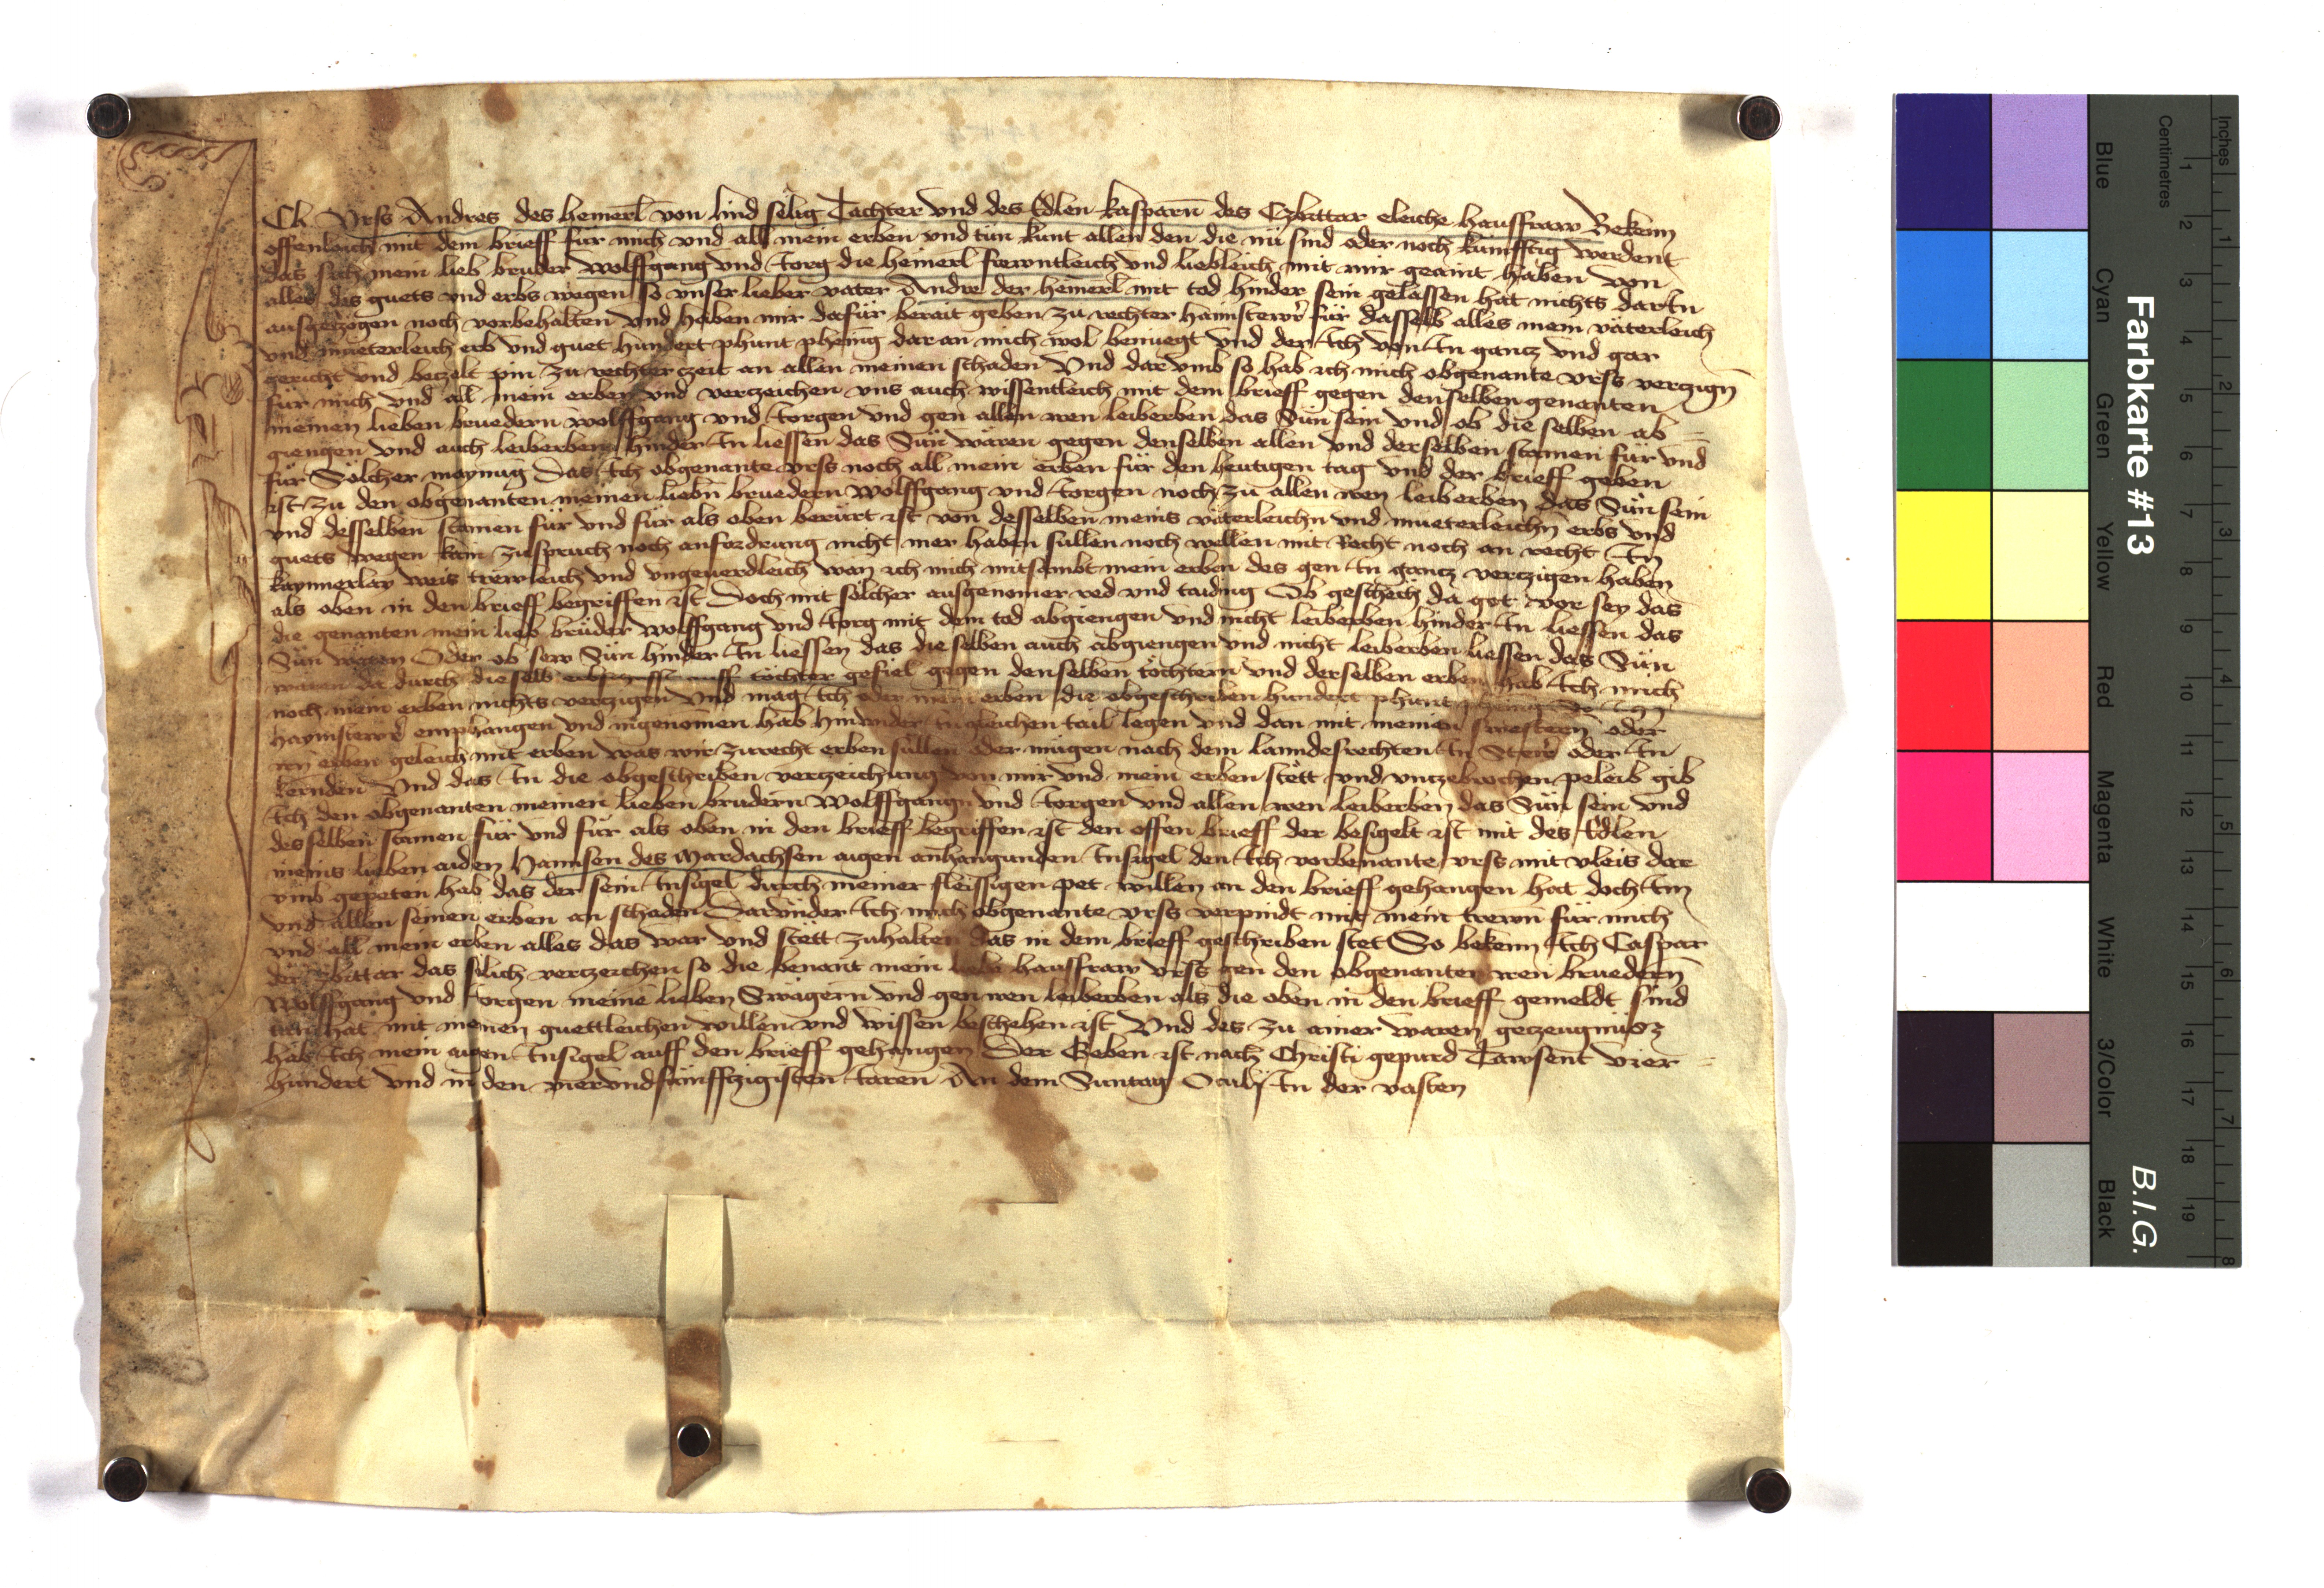 Ich Vrss Andres des hemerl von lind sëlig Tachter vnd des Edlen kasparn des Czbittar eleiche hausfraw Bekenn
offenleich mit dem brieff für mich vnd all mein erben vnd tün kunt allen den die nü sind oder noch kunfftig werdent
das sich mein lieb brüder wolffgang vnd Jorg die hemerl frewntleich vnd liebleich mit mir geaint haben von
alles des guets vnd erbs wegen so vnser lieber vater Andre der hemerl mit tod hinder sein gelassen hat nichts darIn
ausgeczogen noch vorbehalten vnd haben mir dafür berait geben zu rechter haimstewr für dasselb alles mein väterleich
vnd mueterleich erb vnd guet hundert phunt phenig dar an mich wol benuegt vnd der Ich von In gancz vnd gar
gericht vnd beczelt pin zu rechter czeit an allen meinen schaden Vnd dar vmb so hab ich mich obgenante vrss verczign
für mich vnd all mein erben vnd verczeichen vns auch wissentleich mit dem brieff gegen denselben genanten
meinen lieben bruedern wolffgang vnd Jorgen vnd gen allen iren leiberben das Sün sein vnd ob die selben ab
giengen vnd auch leiberben hinder In liessen das Sün wären gegen denselben allen vnd derselben stamen für vnd
für Sölcher maynug Das Ich obgenante vrss noch all mein erben für den heutigen tag vnd der brieff geben
ist zu den obgenanten meinen liebn bruedern wolffgang vnd Jorgen noch zu allen iren leiberben das Sün sein
vnd desselben stamen für vnd für als oben berürt ist von desselben meins väterleichn vnd mueterleichn erbs vnd
guets wegen kain zuspruch noch anfordrung nicht mer haben sullen noch wellen mit Recht noch an recht In
kaynnerlay weis trewleich vnd vngeuerdleich wan ich mich mitsambt mein erben des gen In gancz verczigen haben
als oben in den brieff begriffen ist Doch mit sölcher ausgenomer red vnd taiding Ob geschech da got vor sey das
die genanten mein lieb brüder wolffgang vnd Jorg mit dem tod abgiengen vnd nicht leiberben hinder In liessen das
Sün wären Oder ob sew Sün hinder In liessen das die selben auch abgiengen vnd nicht leiberben liessen das Sün
wären da durch dieselb erbschafft auff töchter gefiel gegen denselben töchtern vnd derselben erben hab Ich mich
noch mein erben nichts verczigen Vnd mag Ich oder mein erben die obgeschriben hundert phunt phenig
haymstewr emphangen vnd ingenomen hab hinwider in gleichen tail legen vnd dan mit meinen swestern oder
irn erben geleich mit erben was wir zurecht erben süllen oder mügen nach dem lanndesrechten In Steir oder In
kernden Vnd das In die obgeschriben verczeichung von mir vnd mein erben stëtt vnd vnczebrochen peleib gib
Ich den obgenanten meinen lieben brudern Wolffgangn vnd Jorgen vnd allen iren leiberben das Sün sein vnd
desselben stamen für vnd für als oben in den brieff begriffen ist den offen brieff der besigelt ist mit des Edlen
meins lieben aiden Hannsen des Mardachsen aigen anhangunden Insigel den Ich vorbenante vrss mit vleis dar
vmb gepeten hab das der sein Insigel durch meiner fleissigen pet willen an den brieff gehangen hat doch Im
vnd allen seinen erben an schaden Darvnder Ich mich obgenante vrss verpindt mit mein trewn für mich
vnd all mein erben alles das war vnd stëtt zuhalten das in dem brieff geschriben stet So bekenn Ich Caspar
der Zbittar das sölich verczeichen so die benant mein liebe hausfraw vrss gen den obgenanten iren bruedern
Wolffgang vnd Jorgen meine lieben Swägern vnd gen iren leiberben als die oben in den brieff gemeldt sind
getan hat mit meinen guettleichen willen vnd wissen beschehen ist Vnd des zu ainer waren geczeugnüss
hab Ich mein aigen Insigel auff den brieff gehangen Der Geben ist nach Christi gepurd Tawsent vier
hundert vnd in den vierundfünffczigisten Jaren An dem Suntag Oculi In der vasten
Farbkarte #13
B.I.G.
Inches
Centimetres
Blue
Cyan
Green
Yellow
Red
Magenta
White
3/Color
Black
1 2 3 4 5 6 7 8 9 10 11 12 13 14 15 16 17 18 19
1 2 3 4 5 6 7 8